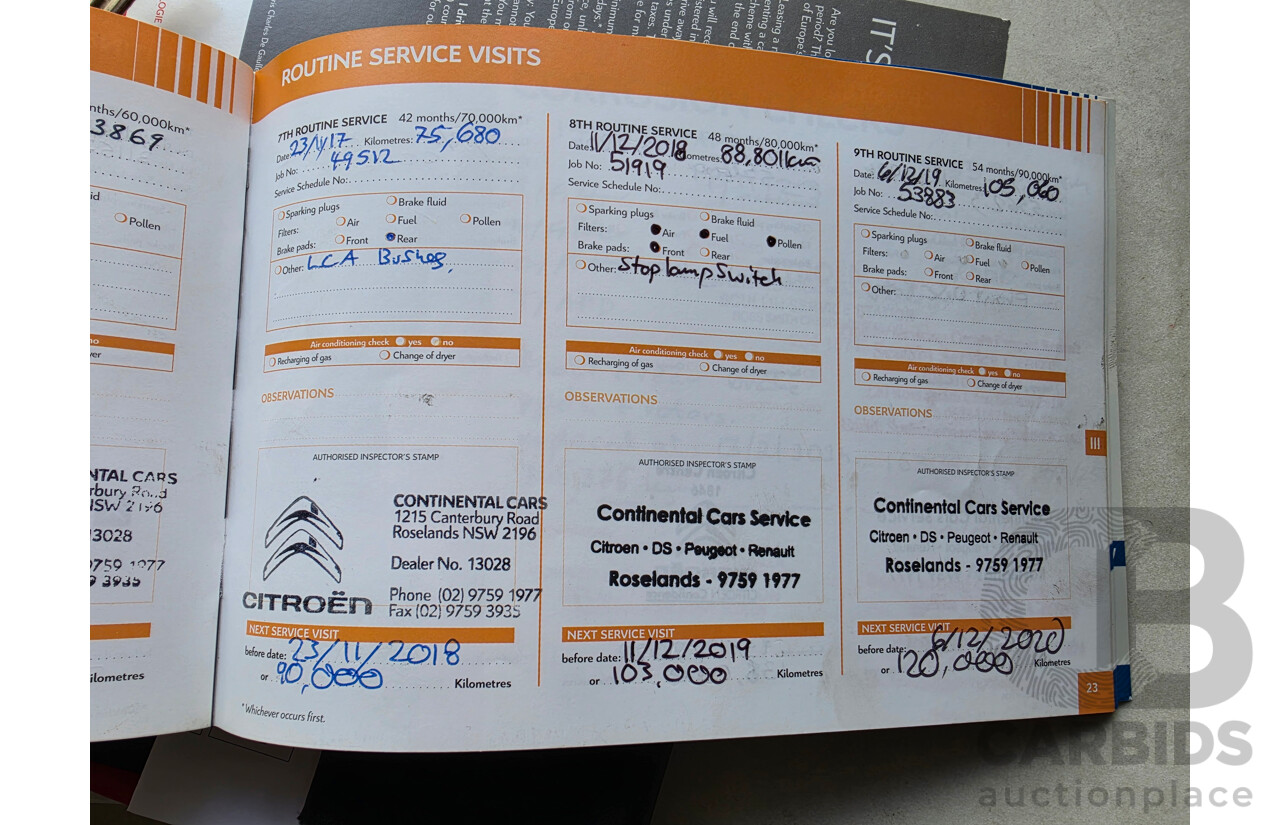 IT'S
ROUTINE SERVICE VISITS
nths/60,000km*
3869
Pollen
no
NTAL CARS
rbury Road
NSW 2196
13028
9759 1977
9 3935
ilometres
7TH ROUTINE SERVICE 42 months/70,000km*
Date: 23/11/17 Kilometres: 75,680
Job No: 49512
Service Schedule No:
Sparking plugs Brake fluid
Filters: Air Fuel Pollen
Brake pads: Front Rear
Other: LCA Bushes,
Air conditioning check yes no
Recharging of gas Change of dryer
OBSERVATIONS
AUTHORISED INSPECTOR'S STAMP
CITROËN
CONTINENTAL CARS
1215 Canterbury Road
Roselands NSW 2196
Dealer No. 13028
Phone (02) 9759 1977
Fax (02) 9759 3935
NEXT SERVICE VISIT
before date: 23/11/2018
or 90,000 Kilometres
*Whichever occurs first.
8TH ROUTINE SERVICE 48 months/80,000km*
Date: 11/12/2018 Kilometres: 88,801km
Job No: 51919
Service Schedule No:
Sparking plugs Brake fluid
Filters: Air Fuel Pollen
Brake pads: Front Rear
Other: Stop lamp Switch
Air conditioning check yes no
Recharging of gas Change of dryer
OBSERVATIONS
AUTHORISED INSPECTOR'S STAMP
Continental Cars Service
Citroen • DS • Peugeot • Renault
Roselands - 9759 1977
NEXT SERVICE VISIT
before date: 11/12/2019
or 103,000 Kilometres
9TH ROUTINE SERVICE 54 months/90,000km*
Date: 6/12/19 Kilometres: 105,060
Job No: 53883
Service Schedule No:
Sparking plugs Brake fluid
Filters: Air Fuel Pollen
Brake pads: Front Rear
Other:
Air conditioning check yes no
Recharging of gas Change of dryer
OBSERVATIONS
AUTHORISED INSPECTOR'S STAMP
Continental Cars Service
Citroen • DS • Peugeot • Renault
Roselands - 9759 1977
NEXT SERVICE VISIT
before date: 6/12/2020
or 120,000 Kilometres
III
23
CARBIDS
auctionplace